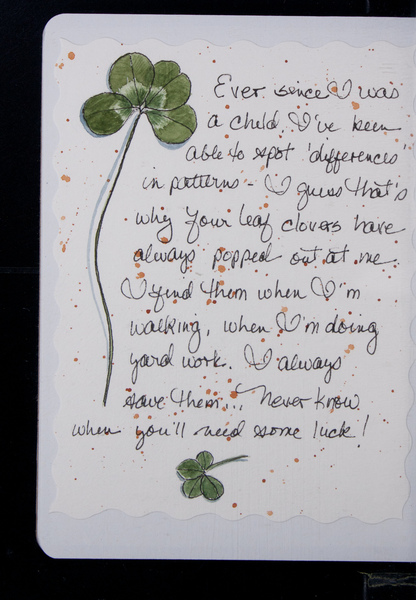 Ever since I was
a child, I've been
able to spot 'differences'
in patterns - I guess that's
why four leaf clovers have
always popped out at me.
I find them when I'm
walking, when I'm doing
yard work. I always
save them... Never know
when you'll need some luck!